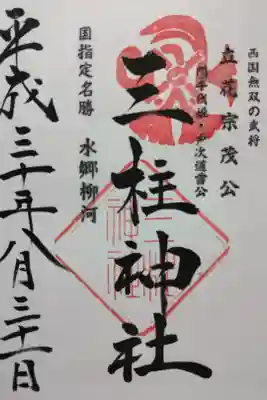 西国無双の武将
立花宗茂公
誾千代姫・戸次道雪公
三柱神社
国指定名勝
水郷柳河
平成三十年八月三十一日